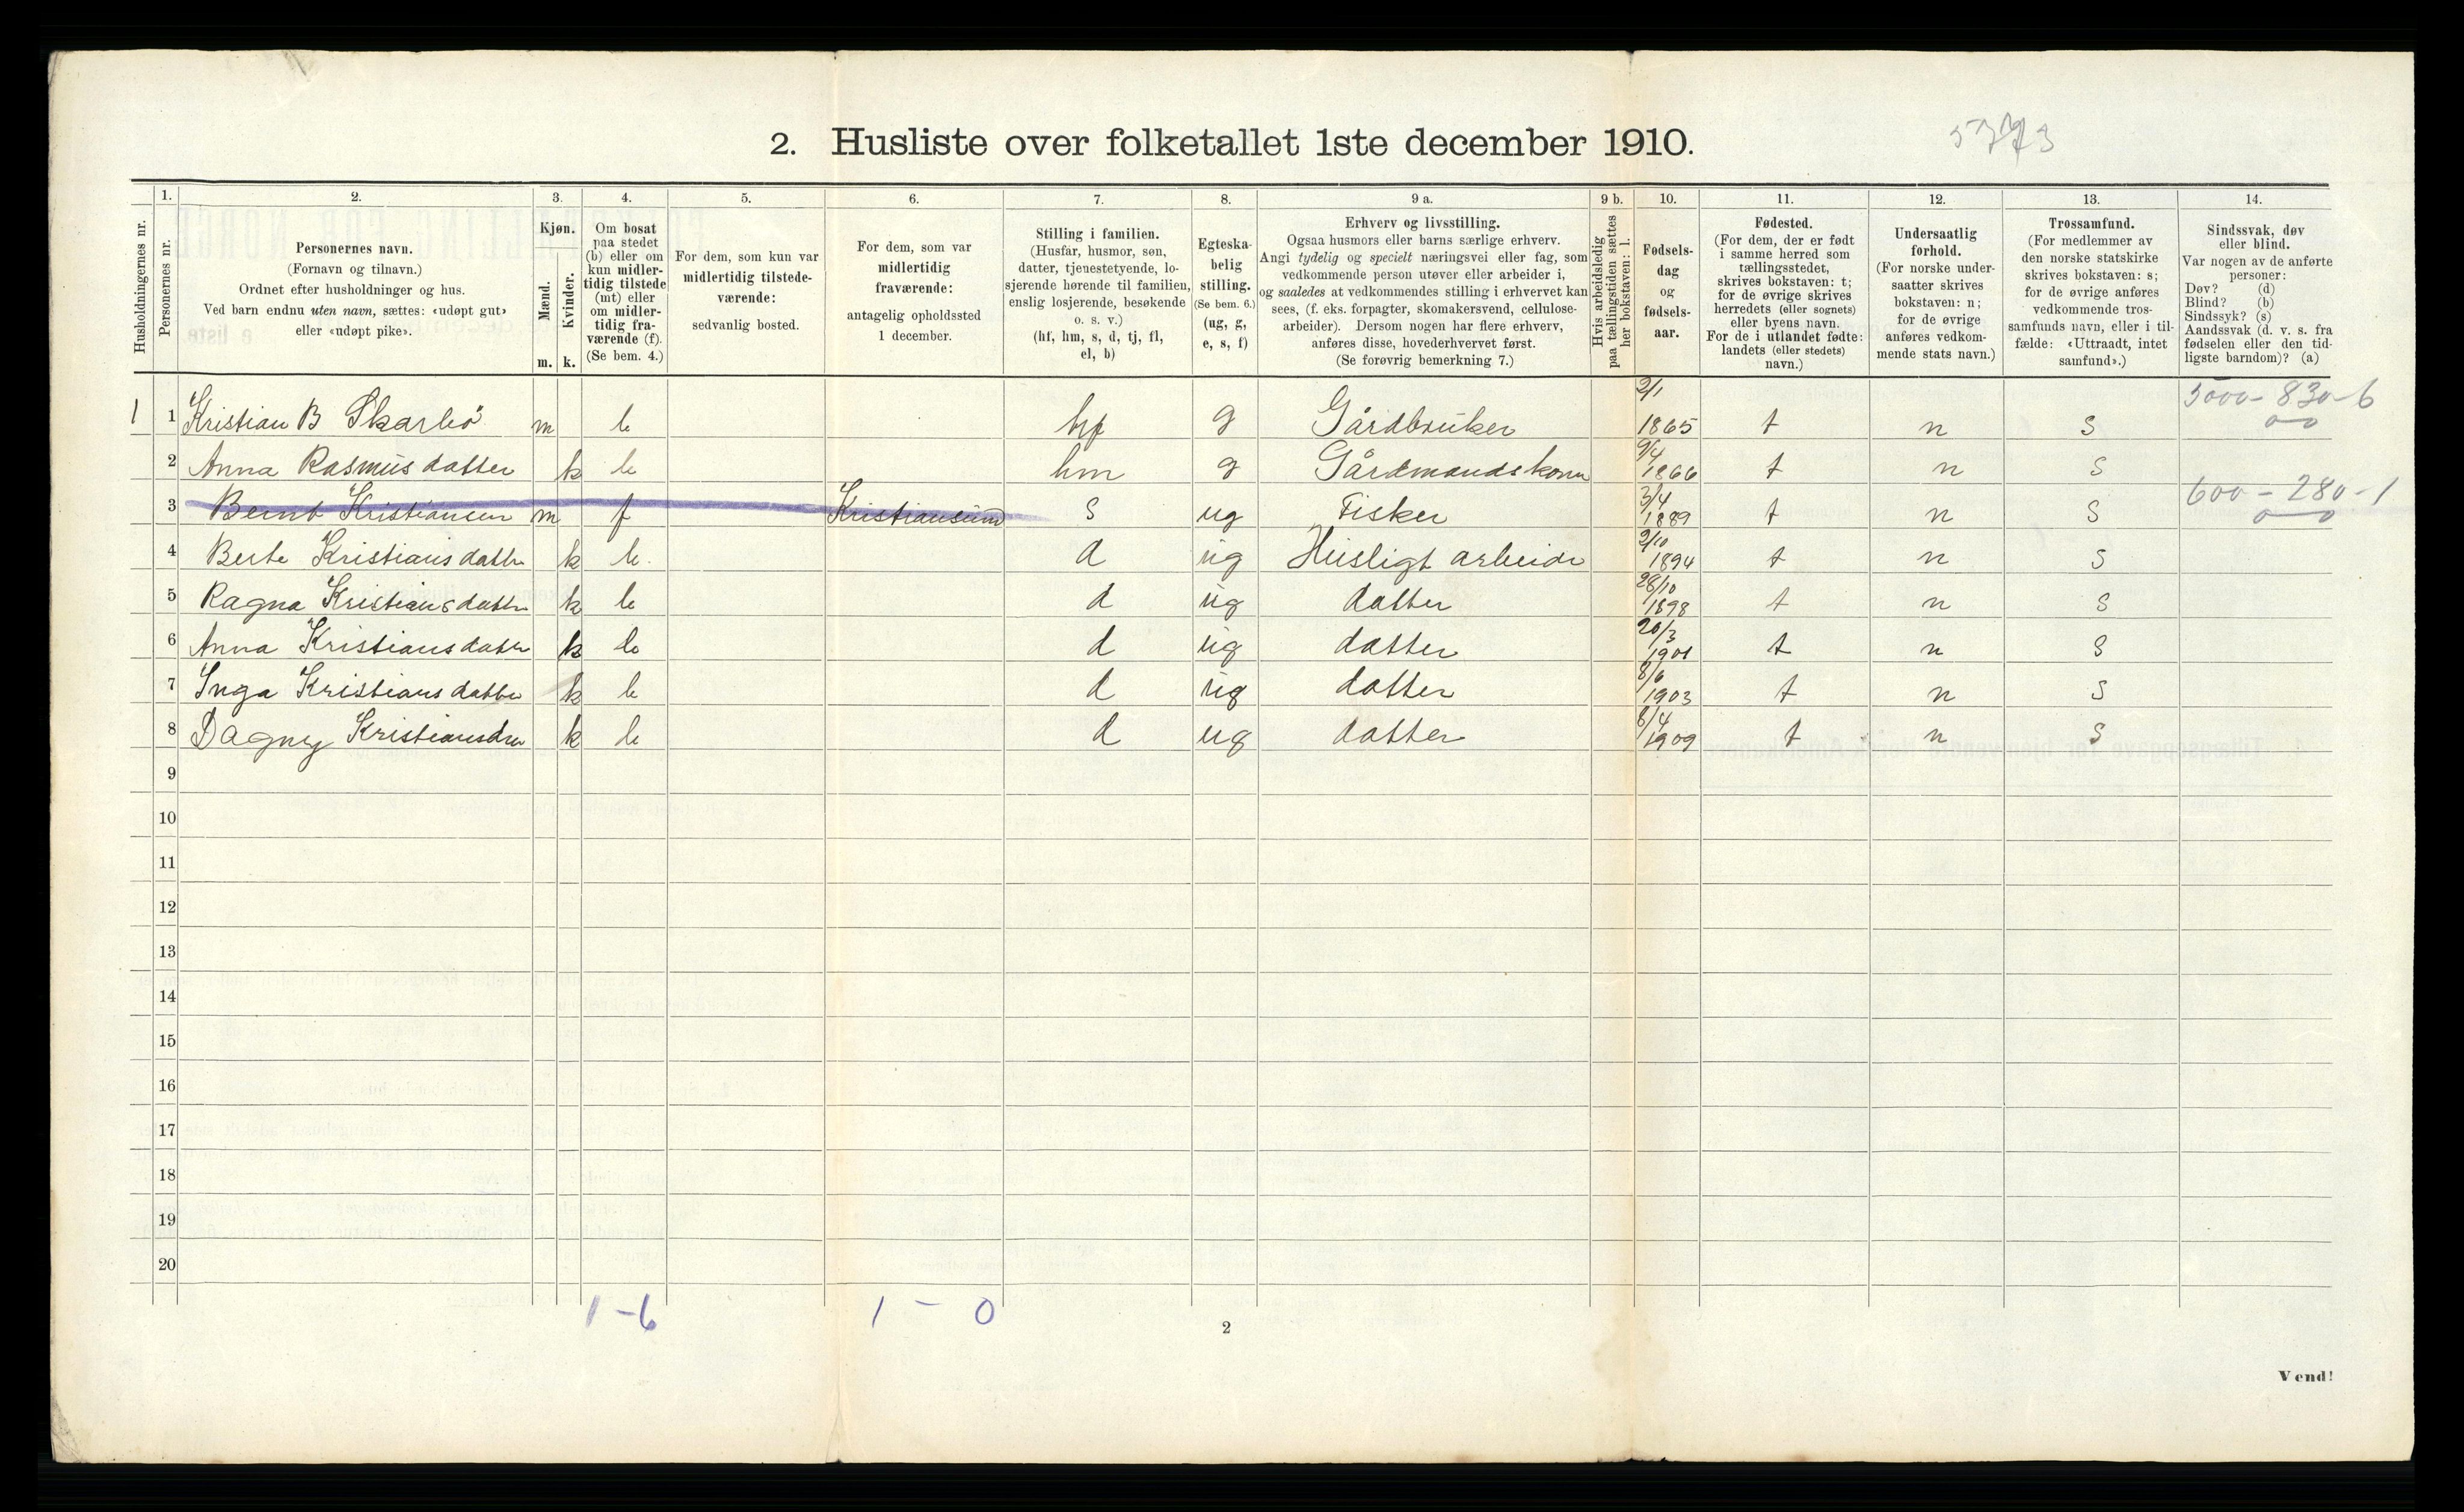 2. Husliste over folketallet 1ste december 1910.
Husholdningernes nr.
1.
Personernes nr.
2.
Personernes navn.
(Fornavn og tilnavn.)
Ordnet efter husholdninger og hus.
Ved barn endnu uten navn, sættes: «udøpt gut»
eller «udøpt pike».
3.
Kjøn.
Mænd.
Kvinder.
m. k.
4.
Om bosat
paa stedet
(b) eller om
kun midler-
tidig tilstede
(mt) eller
om midler-
tidig fra-
værende (f).
(Se bem. 4.)
5.
For dem, som kun var
midlertidig tilstede-
værende:
sedvanlig bosted.
6.
For dem, som var
midlertidig
fraværende:
antagelig opholdssted
1 december.
7.
Stilling i familien.
(Husfar, husmor, søn,
datter, tjenestetyende, lo-
sjerende hørende til familien,
enslig losjerende, besøkende
o. s. v.)
(hf, hm, s, d, tj, fl,
el, b)
8.
Egteska-
belig
stilling.
(Se bem. 6.)
(ug, g,
e, s, f)
9 a.
Erhverv og livsstilling.
Ogsaa husmors eller barns særlige erhverv.
Angi tydelig og specielt næringsvei eller fag, som
vedkommende person utøver eller arbeider i,
og saaledes at vedkommendes stilling i erhvervet kan
sees, (f. eks. forpagter, skomakersvend, cellulose-
arbeider). Dersom nogen har flere erhverv,
anføres disse, hovederhvervet først.
(Se forøvrig bemerkning 7.)
9 b.
Hvis arbeidsledig
paa tællingstiden sættes
her bokstaven: l.
10.
Fødsels-
dag
og
fødsels-
aar.
11.
Fødested.
(For dem, der er født
i samme herred som
tællingsstedet,
skrives bokstaven: t;
for de øvrige skrives
herredets (eller sognets)
eller byens navn.
For de i utlandet fødte:
landets (eller stedets)
navn.)
12.
Undersaatlig
forhold.
(For norske under-
saatter skrives
bokstaven: n;
for de øvrige
anføres vedkom-
mende stats navn.)
13.
Trossamfund.
(For medlemmer av
den norske statskirke
skrives bokstaven: s;
for de øvrige anføres
vedkommende tros-
samfunds navn, eller i til-
fælde: «Uttraadt, intet
samfund».)
14.
Sindssvak, døv
eller blind.
Var nogen av de anførte
personer:
Døv? (d)
Blind? (b)
Sindssyk? (s)
Aandssvak (d. v. s. fra
fødselen eller den tid-
ligste barndom)? (a)
1 1 Kristian B Skarbö m b hf g Gårdbruker 2/1 1865 t n s 5000 - 830 - 6
2 Anna Rasmusdatter k b hm g Gårdmandskone 9/4 1866 t n s
3 Bernt Kristiansen m f Kristiansund s ug Fisker 3/4 1889 t n s 600 - 280 - 1
4 Berte Kristiansdatter k b. d ug Husligt arbeide 2/10 1894 t n s
5 Ragna Kristiansdatter k b d ug datter 28/10 1898 t n s
6 Anna Kristiansdatter k b d ug datter 20/3 1901 t n s
7 Inga Kristiansdatter k b d ug datter 8/6 1903 t n s
8 Dagny Kristiansdtr k b d ug datter 8/4 1909 t n s
9
10
11
12
13
14
15
16
17
18
19
20
1 - 6 1 - 0
2
Vend!